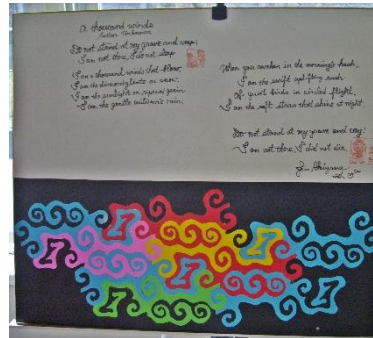 a thousand winds
Author Unknown
Do not stand at my grave and weep;
I am not there, I do not sleep.
I am a thousand winds that blow.
I am the diamond glints on snow.
I am the sunlight on ripened grain.
I am the gentle autumn's rain.
When you awaken in the morning's hush,
I am the swift uplifting rush
Of quiet birds in circled flight,
I am the soft stars that shine at night.
Do not stand at my grave and cry;
I am not there, I did not die.